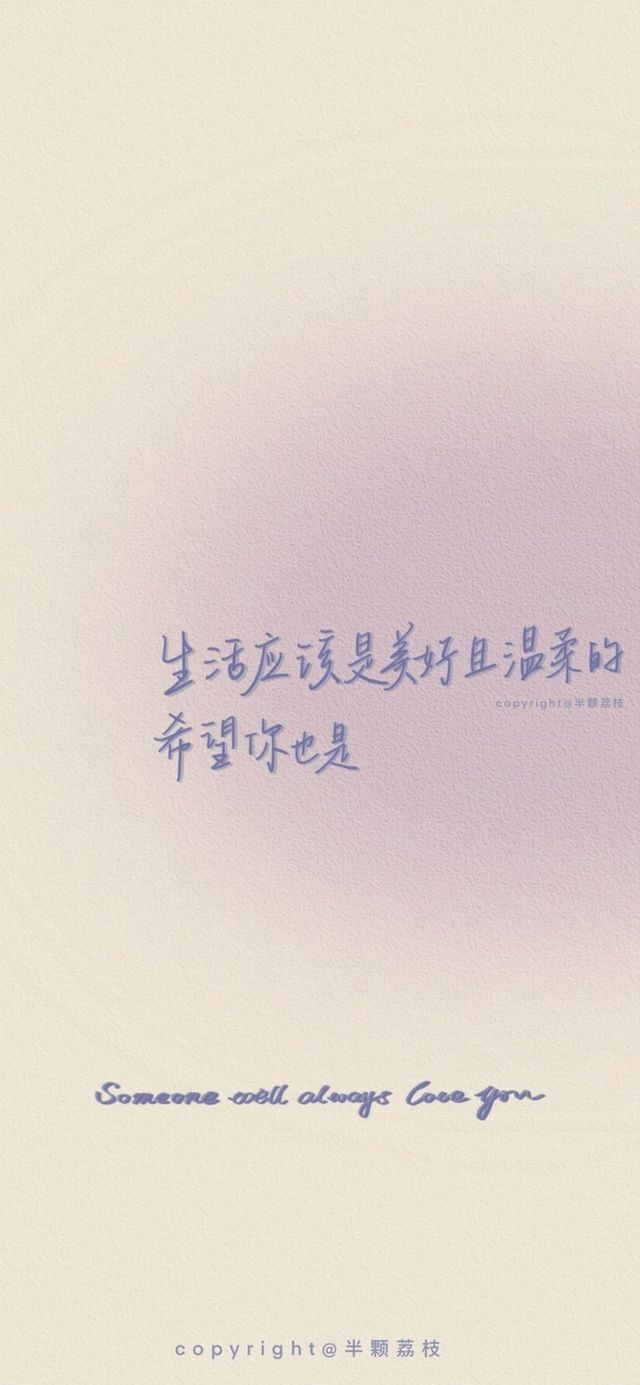 生活应该是美好且温柔的
copyright@半颗荔枝
希望你也是
Someone will always love you
copyright@半颗荔枝